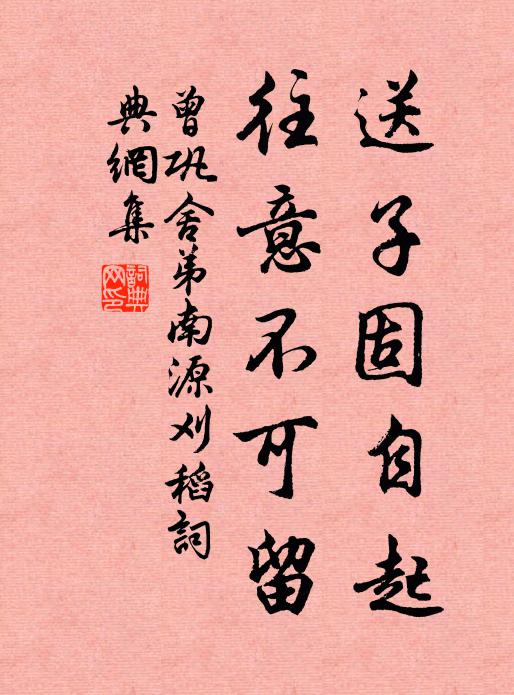 送子固自起
往意不可留
曾巩舍弟南源刈稻詞
典網集
詞典網印